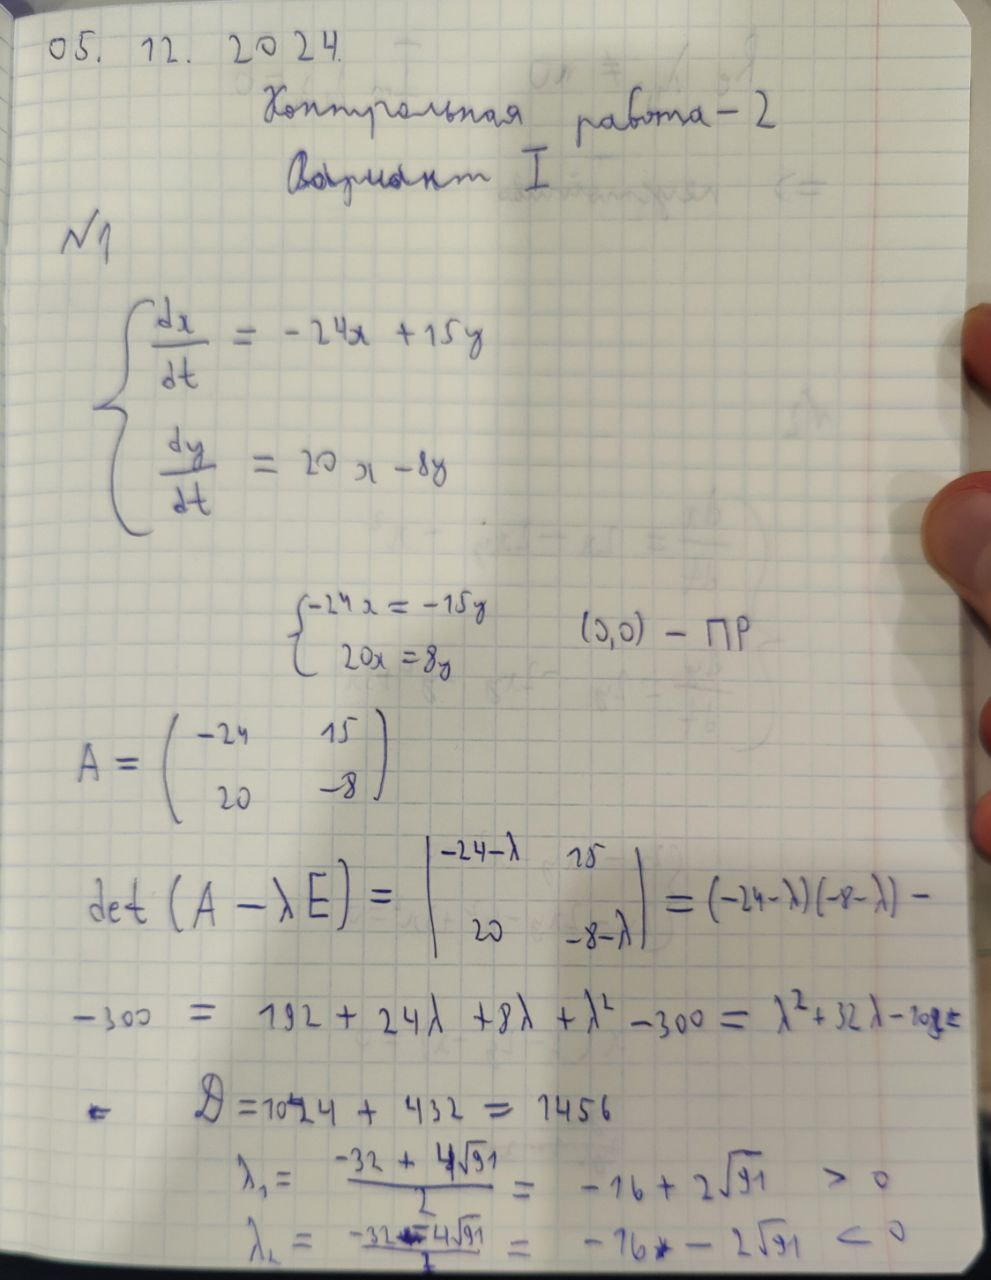 05. 12. 2024.
Контрольная работа - 2
Вариант I
№1
{ dx/dt = -24x + 15y
dy/dt = 20x - 8y
{ -24x = -15y
20x = 8y (0,0) - ПР
A = ( -24 15
20 -8 )
det (A - λE) = | -24-λ 15
20 -8-λ | = (-24-λ)(-8-λ) -
-300 = 192 + 24λ + 8λ + λ² - 300 = λ² + 32λ - 108 =
= D = 1024 + 432 = 1456
λ₁ = (-32 + 4√91)/2 = -16 + 2√91 > 0
λ₂ = (-32 - 4√91)/2 = -16 - 2√91 < 0